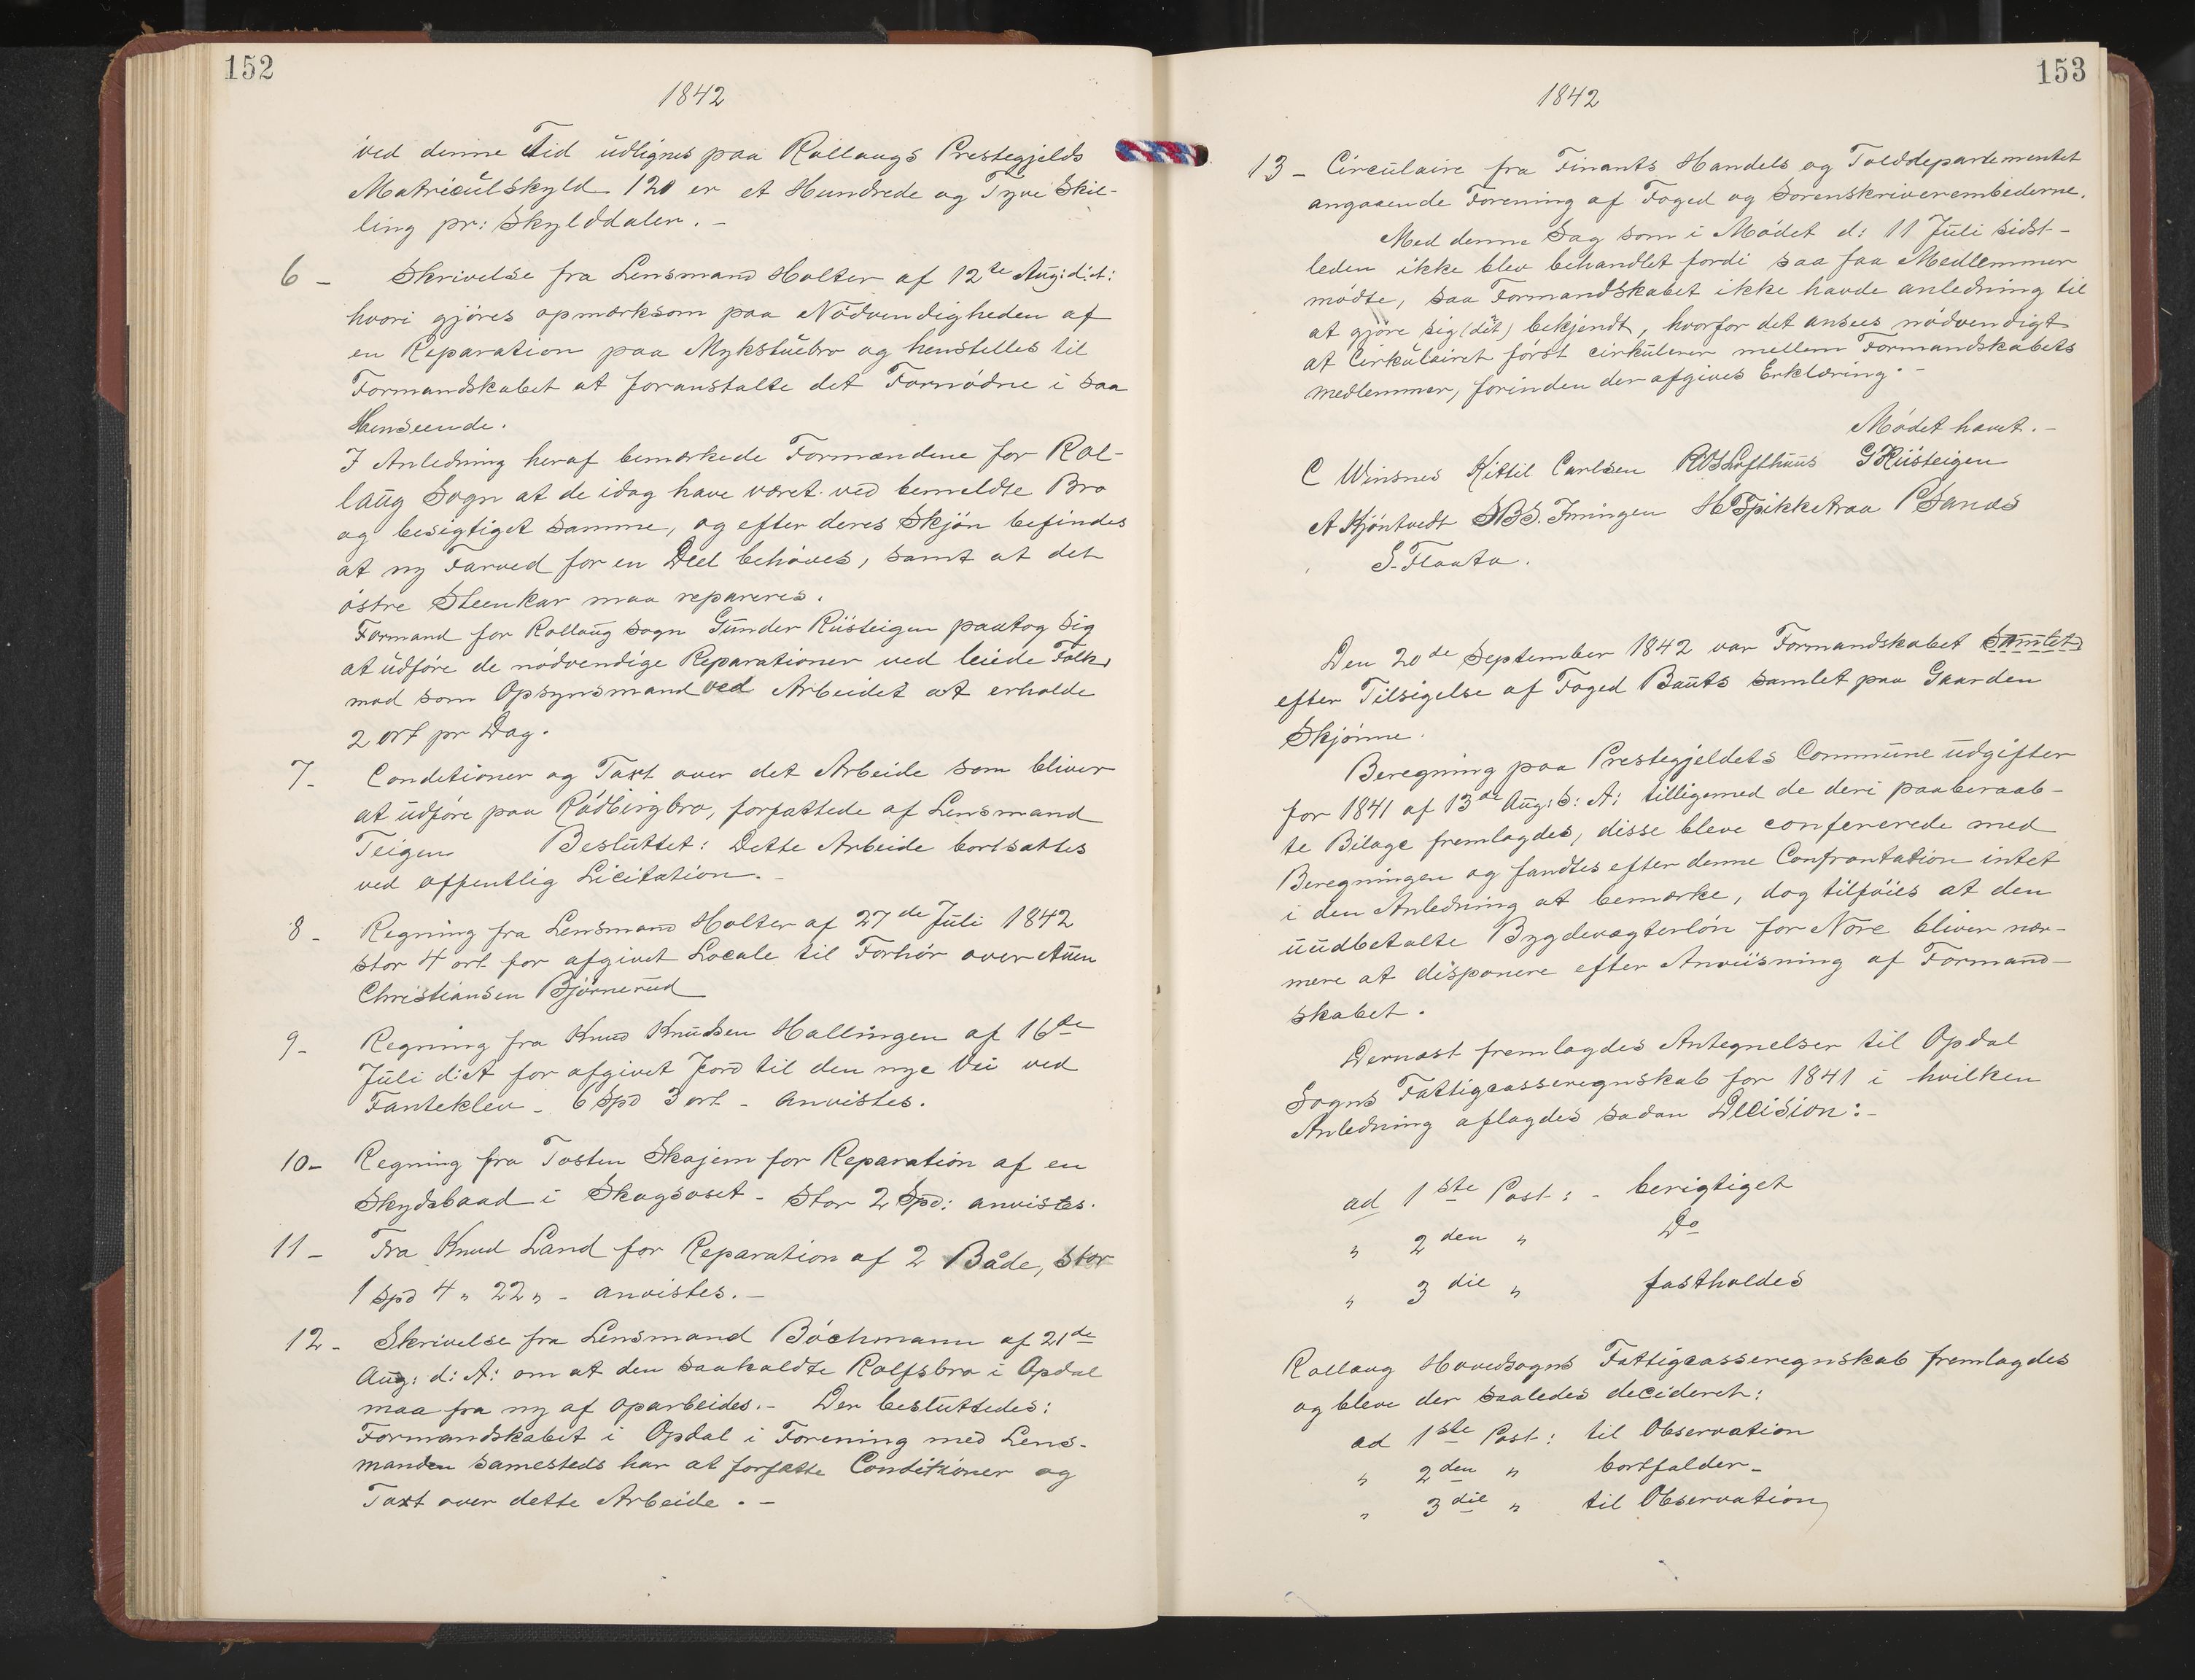 152
1842
ved denne Tid udlignes paa Rollaugs Prestegjelds
Matriculskyld 120 er et Hundrede og Tyve Skil-
ling pr: Skylddaler. -
6 - Skrivelse fra Lensmand Holter af 12te Aug: d: A:
hvori gjöres opmærksom paa Nödvendigheden af
en Reparation paa Mykstuebro og henstilles til
Formandskabet at foranstalte det Fornödne i saa
Henseende.
I Anledning heraf bemærkede Formændene for Rol-
laug Sogn at de idag have været ved bemeldte Bro
og besigtiget samme, og efter deres Skjön befindes
at ny Farved for en Deel behöves, samt at det
östre Steenkar maa repareres.
Formand for Rollaug Sogn Gunder Riisteigen paatog sig
at udföre de nödvendige Reparationer ved leiede Folk,
mod som Opsynsmand ved Arbeidet at erholde
2 ort pr Dag.
7 - Conditioner og Taxt over det Arbeide som bliver
at udföre paa Rödbergbro, forfattede af Lensmand
Teigen Besluttet: Dette Arbeide bortsættes
ved offentlig Licitation. -
8 - Regning fra Lensmand Holter af 27de Juli 1842
stor 4 ort for afgivet Locale til Forhör over Auen
Christiansen Björnerud
9 - Regning fra Knud Knudsen Hallingen af 16de
Juli d: A for afgivet Jord til den nye Vei ved
Fanteklev - 6 Spd 3 ort - anvistes.
10 - Regning fra Tosten Skajem for Reparation af en
Skydsbaad i Skogsoset - Stor 2 Spd: anvistes.
11 - Fra Knud Land for Reparation af 2 Både, stor
1 Spd 4 „ 22 „ - anvistes. -
12 - Skrivelse fra Lensmand Bächmann af 21de
Aug: d: A: om at den saakaldte Rolfsbro i Opdal
maa fra ny af oparbeides. - Der besluttedes:
Formandskabet i Opdal i Forening med Lens-
manden samesteds har at forfatte Conditioner og
Taxt over dette Arbeide. -
153
1842
13 - Circulaire fra Finants, Handels og Tolddepartementet
angaaende Forening af Foged og Sorenskriverembederne.
Med denne Sag som i Mödet d: 11 Juli sidst-
leden ikke blev behandlet fordi saa faa Medlemmer
mödte, saa Formandskabet ikke havde anledning til
at gjöre sig (det) bekjendt, hvorfor det ansees nödvendigt
at Cirkulairet först cirkulerer mellem Formandskabets
medlemmer, forinden der afgives Erklæring. -
Mödet hævet. -
C Winsnes Kittil Carlsen ROSLofthuus GRiisteigen
A Kjöntvedt SBS. Inningen HSpikketraa PSanæs
G. Flaata.
Den 20de September 1842 var Formandskabet Samlet
efter Tilsigelse af Foged Bauts samlet paa Gaarden
Skjönne.
Beregning paa Prestegjeldets Commune udgifter
for 1841 af 13de Aug: S: A: tilligemed de deri paaberaab-
te Bilage fremlagdes, disse bleve confererede med
Beregningen og fandtes efter denne Confrontation intet
i den Anledning at bemærke, dog tilföies at den
uudbetalte Bygdevægterlön for Nore bliver nær-
mere at disponere efter Anviisning af Formand-
skabet.
Dernæst fremlagdes Antegnelser til Opdal
Sogns Fattigcasseregnskab for 1841 i hvilken
Anledning aflagdes sadan Decision: -
ad 1ste Post: - berigtiget
„ 2den „ Do
„ 3die „ fastholdes
Rollaug Hovedsogns Fattigcasseregnskab fremlagdes
og bleve der saaledes decideret:
ad 1ste Post: til Observation
„ 2den „ bortfalder -
„ 3die „ til Observation